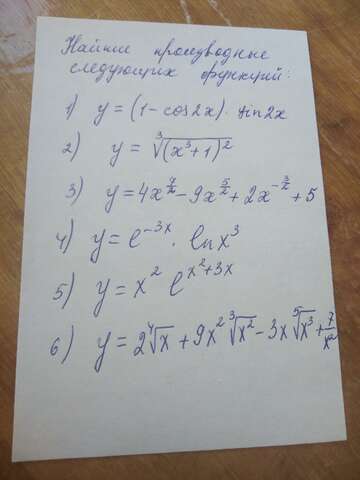 Найти производные
следующих функций:
1) y = (1 - cos2x) · sin2x
2) y = ∛((x³+1)²)
3) y = 4x^(7/2) - 9x^(5/2) + 2x^(-3/2) + 5
4) y = e^(-3x) · ln x³
5) y = x² e^(x²+3x)
6) y = 2 ⁴√x + 9x² ∛(x²) - 3x ⁵√(x³) + 7/x²